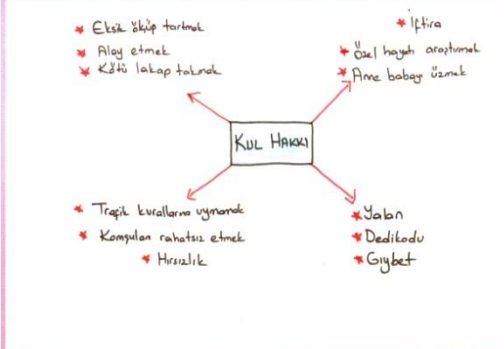 Eksik ölçüp tartmak
Alay etmek
Kötü lakap takmak
İftira
Özel hayatı araştırmak
Anne babayı üzmek
KUL HAKKI
Trafik kurallarına uymamak
Komşuları rahatsız etmek
Hırsızlık
Yalan
Dedikodu
Gıybet